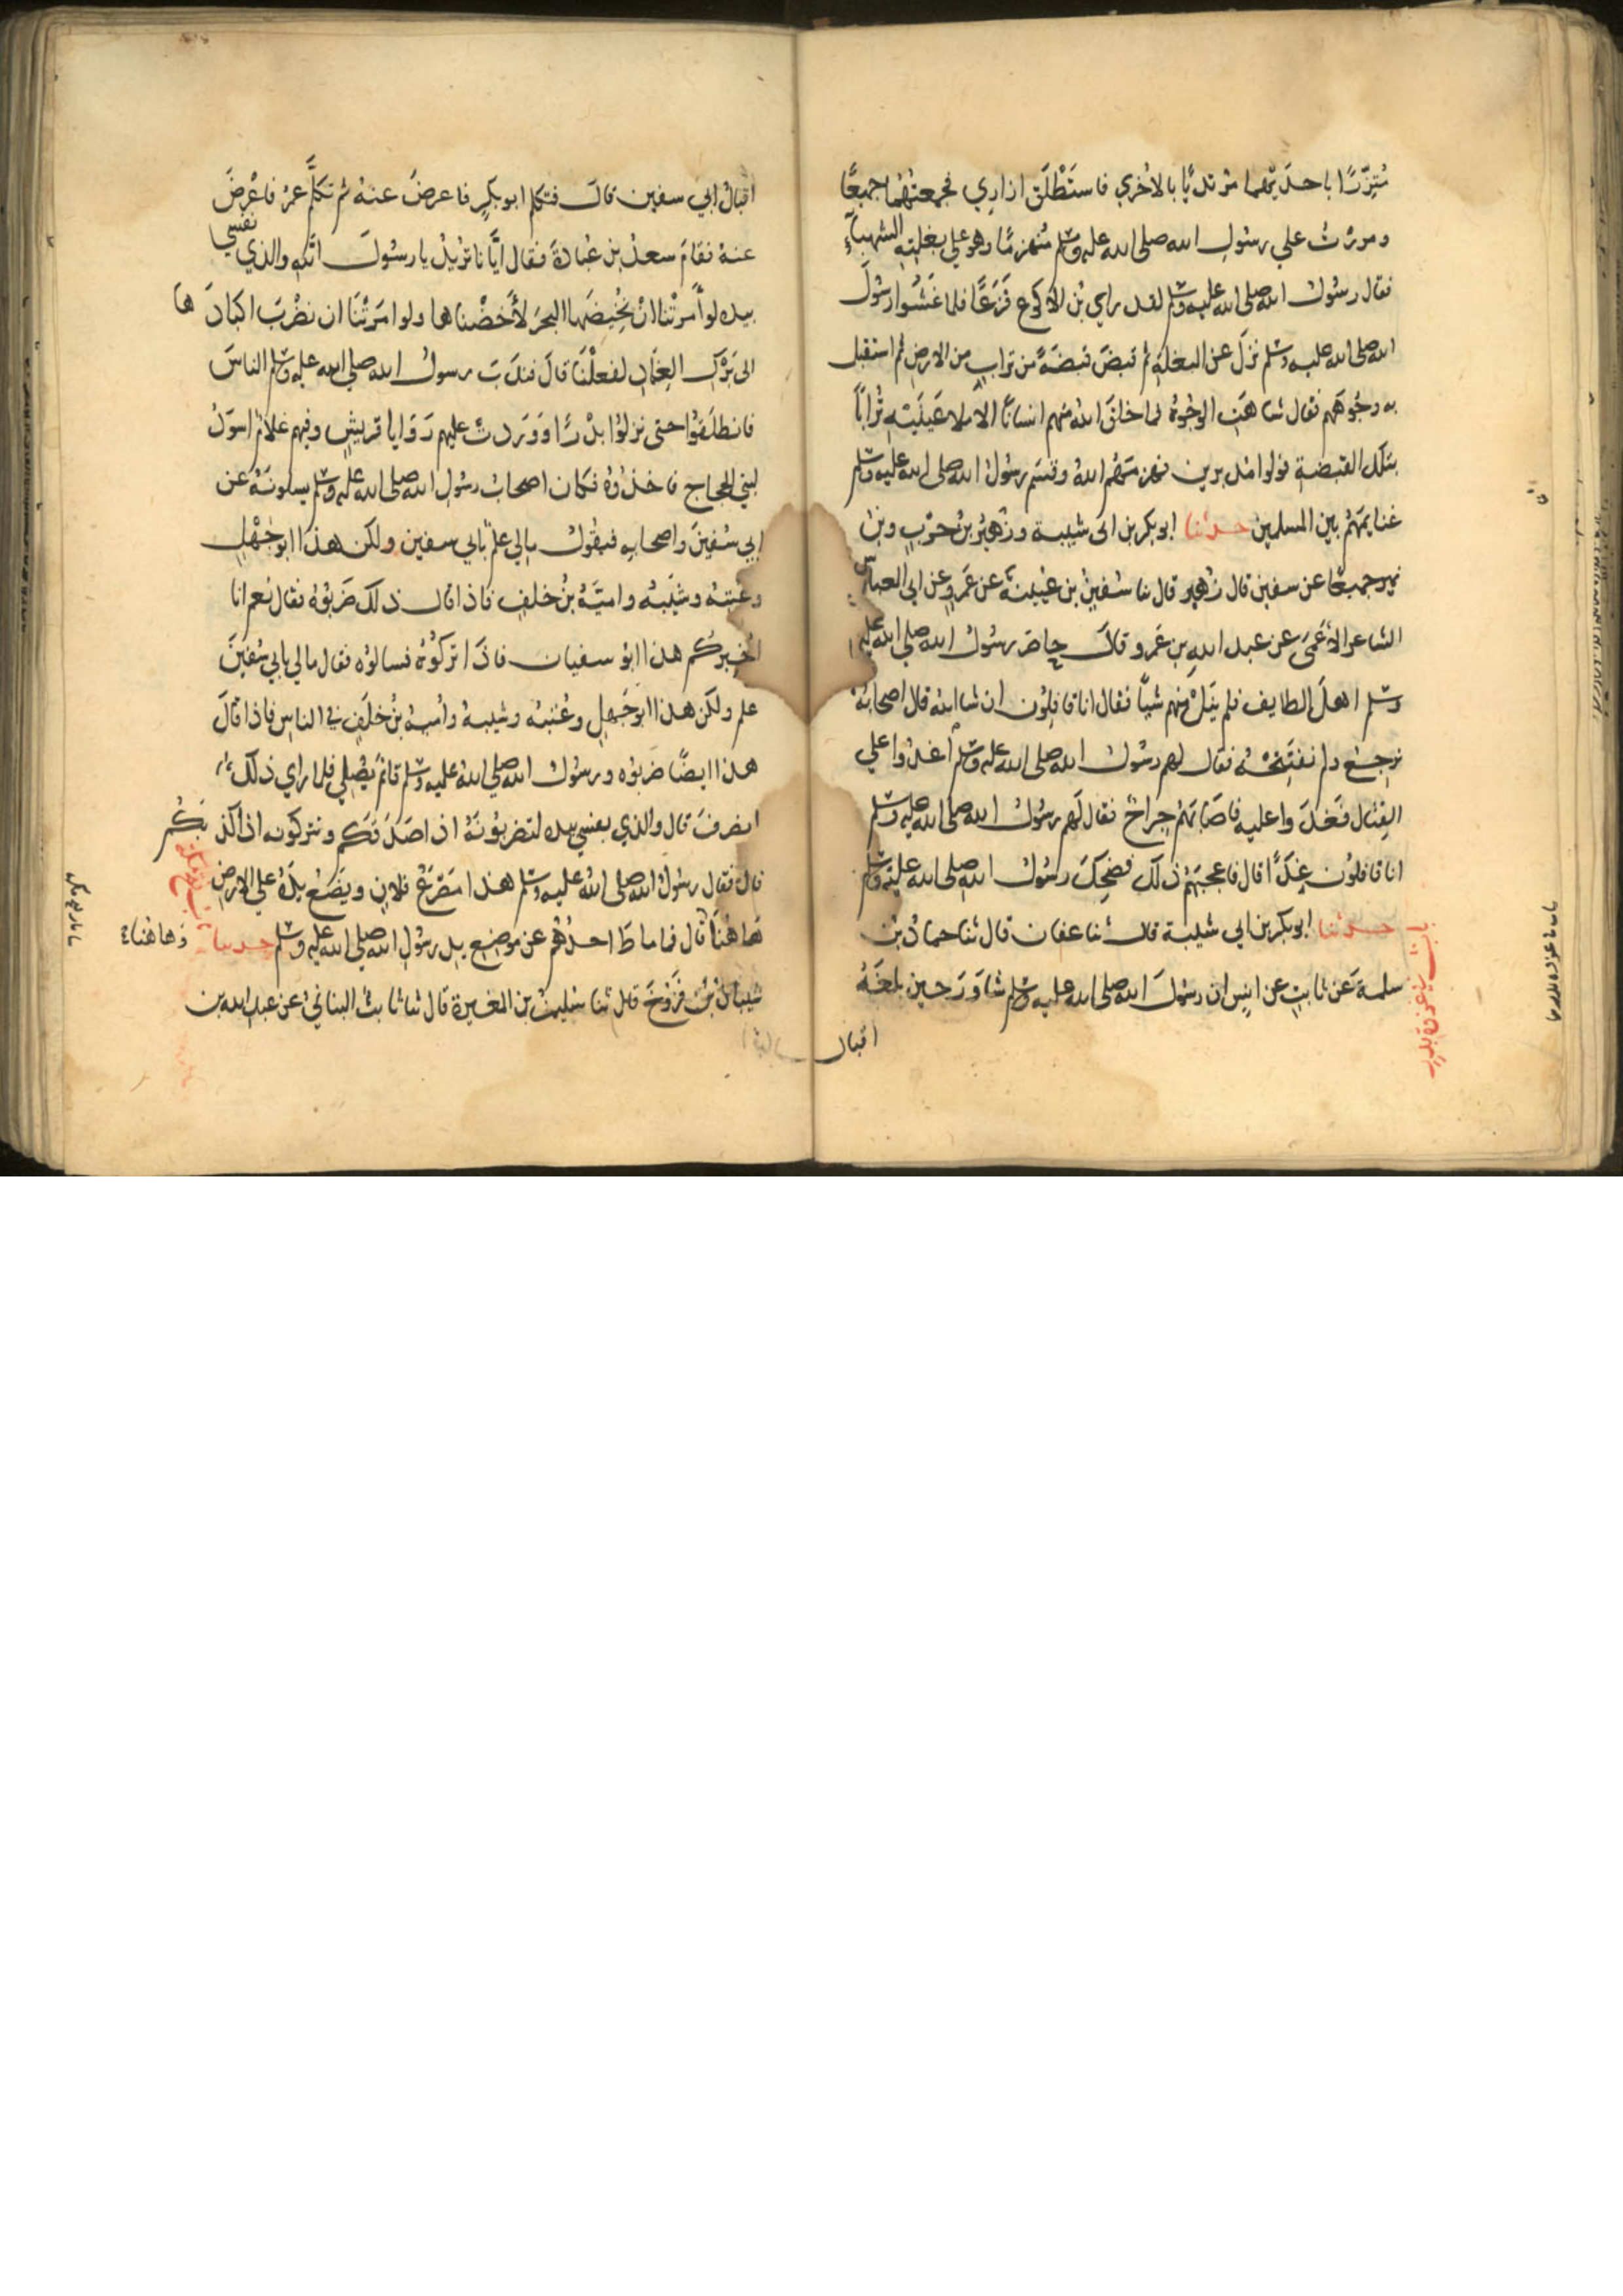 مُتَّزِرًا باحديهما مرتديًا بالاخري فاستَطْلَق ازاري فجمعتهُما جميعًا
ومررتُ علي رسُول الله صلى الله عليه وسلم مُنهزمًا وهو علي بغلتِهِ الشهبآءِ
فقال رسُول الله صلى الله عليه وسلم لقد راي بْن الاكوع فَزَعًا فلما غَشَوا رسُولَ
الله صلى الله عليه وسلم نزلَ عن البغلةِ ثم قبضَ قبضَةً من ترابٍ من الارضِ ثم استقبل
به وجُوهَهم فقال شاهَتِ الوجُوهُ فما خلقَ اللهُ منهم انسانًا الا ملا عَينَيْهِ تُرابًا
بتلك القبضةِ فولوا مدبرين فهزمَهُم اللهُ وقسَم رسُولُ الله صلى الله عليه وسلم
غنايمَهُم بين المسلمين حدثنا ابو بكر بن ابى شيبة وزُهيرُ بنُ حرْبٍ وبنُ
نمير جميعًا عن سفين قال زُهير قال نا سُفينُ بن عُيينةَ عن عَمرٍو عن ابي العباس
الشاعر الاعْمَى عن عبد الله بن عَمرو قال حاصَر رسُولُ الله صلى الله عليه
وسلم اهلَ الطايف فلم ينَلْ منهم شيًا فقال انا قافِلُون ان شا الله قال اصحابُهُ
نرجِعُ ولم نفتَتِحْهُ فقال لهم رسُولُ الله صلى الله عليه وسلم اغدُوا علي
القِتال فغَدَوا عليه فاصَابَهُم جِراحٌ فقال لَهم رسُولُ الله صلى الله عليه وسلم
انا قافلُون غَدًا قال فاعجبَهُم ذلك فضحِكَ رسُولُ الله صلى الله عليه وسلم
حدثنا ابو بكر بن ابي شيبة قال نا عفان قال ثنا حمادُ بن
باب في غزوة بدر
سلمة عن ثابتٍ عن انسٍ ان رسُولَ الله صلى الله عليه وسلم شاوَرَ حين بلغَهُ
اقبال
اقبالُ ابي سفين قالَ فتكلم ابو بكرٍ فاعرضَ عنهُ ثم تكلَّم عمرُ فاعْرضَ
عنهُ فقامَ سعدُ بن عُبادةَ فقال ايَّانا تُريدُ يا رسُولَ الله والذي نفسي
بيده لو أمرْتَنا انْ نُخِيضَها البحرَ لأَخضْناها ولو امَرْتَنَا ان نضْربَ اكبادَها
الى بَرْك الغِمَادِ لفعلْنَا قالَ فندَبَ رسولُ الله صلى الله عليه وسلم الناسَ
فانطلَقُوا حتى نزلُوا بدْرًا ووَرَدتْ عليهم رَوَايا قريشٍ وفيهم غلامٌ اسوَدُ
لبني الحجاج فاخذُوهُ فكان اصحابُ رسُول الله صلى الله عليه وسلم يسلونَهُ عن
ابي سُفينَ واصحابِهِ فيقُولُ مالي علمٌ بابي سفين ولكن هذا ابو جَهْلٍ
وعُتبةُ وشَيْبةُ واميَّةُ بنُ خلفٍ فاذا قال ذلك ضَربُوهُ فقال نعم انا
اُخبركم هذا ابُو سفيان فاذَا تركُوهُ فسالوُه فقال مالي بابي سُفينَ
علم ولكن هذا ابو جَهلٍ وعُتبةُ وشيبةُ وأميةُ بنُ خلَفٍ في الناس فاذا قالَ
هذا ايضًا ضربُوه ورسُولُ الله صلى الله عليه وسلم قايمٌ يُصَلي فلما راي ذلك
انصرفَ قال والذي نفسي بيده لتضربُونَهُ اذا صدَقَكم وتتركونه اذا كذبكُم
قال فقال رسُولُ الله صلى الله عليه وسلم هذا مَصْرَعُ فلانٍ ويضَعُ يدَهُ علي الارض
هَاهُنا وهاهُنا قال فما ماطَ احدُهُم عن موضِع يدِ رسُولِ الله صلى الله عليه وسلم حدثنا
شيبانُ بنُ فرُّوخَ قال ثنا سُليمنُ بن المغيرة قال ثنا ثابتٌ البنانيُّ عن عبد الله بن